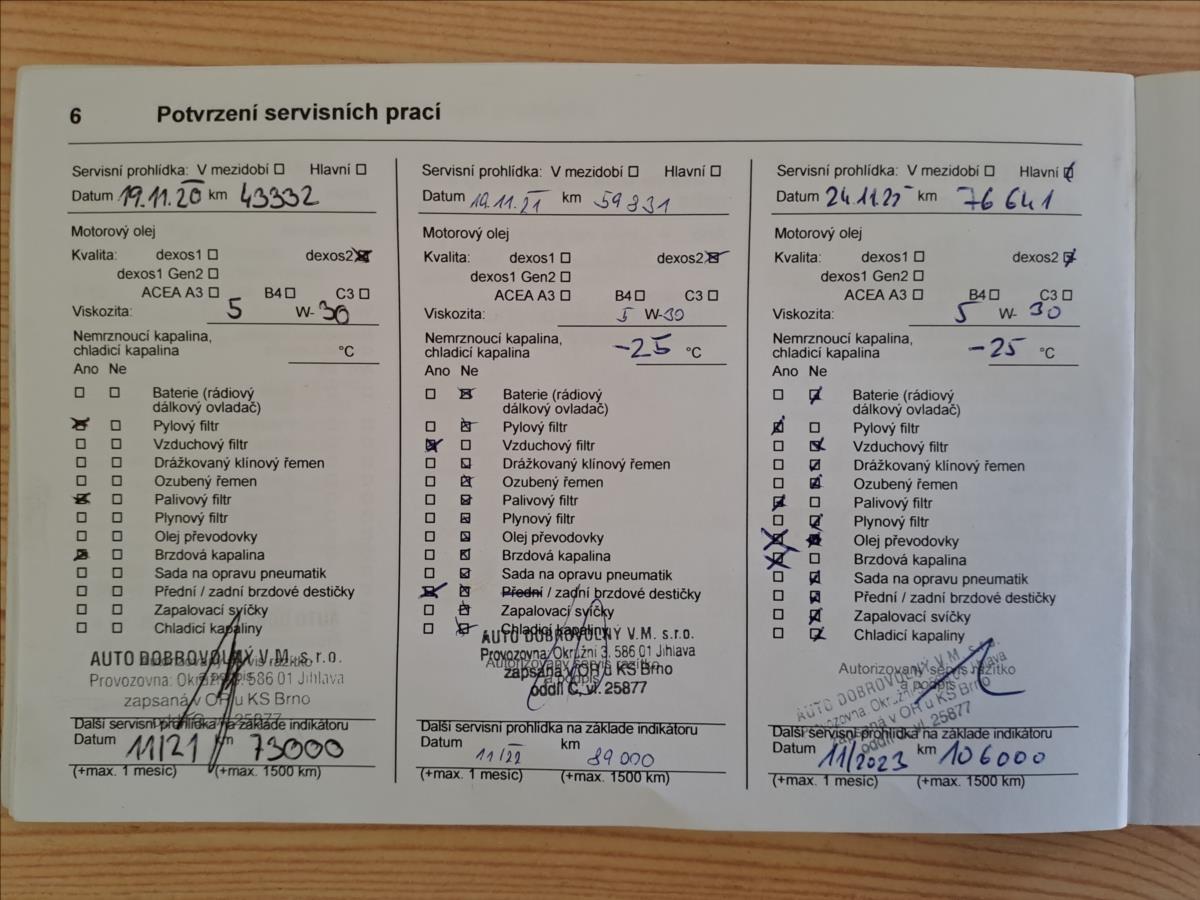 6 Potvrzení servisních prací
Servisní prohlídka: V mezidobí Hlavní
Datum 19.11.20 km 43332
Motorový olej
Kvalita: dexos1 dexos2
dexos1 Gen2
ACEA A3 B4 C3
Viskozita: 5 W-30
Nemrznoucí kapalina,
chladicí kapalina °C
Ano Ne
Baterie (rádiový
dálkový ovladač)
Pylový filtr
Vzduchový filtr
Drážkovaný klínový řemen
Ozubený řemen
Palivový filtr
Plynový filtr
Olej převodovky
Brzdová kapalina
Sada na opravu pneumatik
Přední / zadní brzdové destičky
Zapalovací svíčky
Chladicí kapaliny
AUTO DOBROVOLNÝ V.M. s.r.o.
Provozovna: Okružní 3, 586 01 Jihlava
zapsaná v OR u KS Brno
Další servisní prohlídka na základe indikátoru
Datum 11/21 km 73000
(+max. 1 mesic) (+max. 1500 km)
Servisní prohlídka: V mezidobí Hlavní
Datum 19.11.21 km 59831
Motorový olej
Kvalita: dexos1 dexos2
dexos1 Gen2
ACEA A3 B4 C3
Viskozita: 5 W-30
Nemrznoucí kapalina,
chladicí kapalina -25 °C
Ano Ne
Baterie (rádiový
dálkový ovladač)
Pylový filtr
Vzduchový filtr
Drážkovaný klínový řemen
Ozubený řemen
Palivový filtr
Plynový filtr
Olej převodovky
Brzdová kapalina
Sada na opravu pneumatik
Přední / zadní brzdové destičky
Zapalovací svíčky
Chladicí kapaliny
AUTO DOBROVOLNÝ V.M. s.r.o.
Provozovna: Okružní 3, 586 01 Jihlava
Autorizovaný servis razítko
zapsaná v OR u KS Brno
a podpis
oddíl C, vl. 25877
Další servisní prohlídka na základe indikátoru
Datum 11/22 km 89000
(+max. 1 mesic) (+max. 1500 km)
Servisní prohlídka: V mezidobí Hlavní
Datum 24.11.22 km 76641
Motorový olej
Kvalita: dexos1 dexos2
dexos1 Gen2
ACEA A3 B4 C3
Viskozita: 5 W-30
Nemrznoucí kapalina,
chladicí kapalina -25 °C
Ano Ne
Baterie (rádiový
dálkový ovladač)
Pylový filtr
Vzduchový filtr
Drážkovaný klínový řemen
Ozubený řemen
Palivový filtr
Plynový filtr
Olej převodovky
Brzdová kapalina
Sada na opravu pneumatik
Přední / zadní brzdové destičky
Zapalovací svíčky
Chladicí kapaliny
Autorizovaný servis razítko
a podpis
AUTO DOBROVOLNÝ V.M. s.r.o.
Provozovna: Okružní 3, 586 01 Jihlava
zapsaná v OR u KS Brno
oddíl C, vl. 25877
Další servisní prohlídka na základe indikátoru
Datum 11/2023 km 106000
(+max. 1 mesic) (+max. 1500 km)